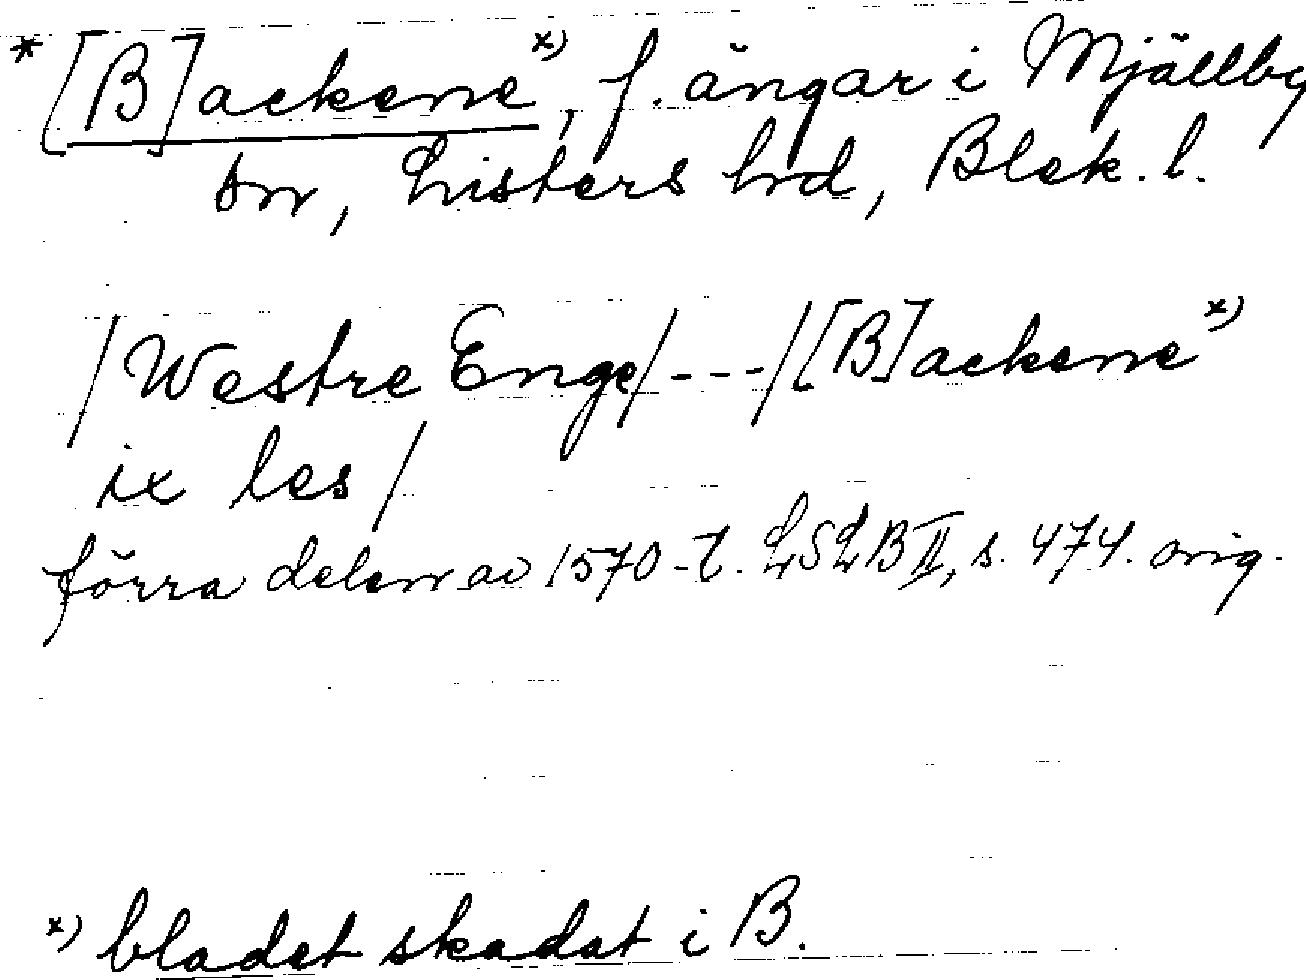 * [B]ackene x), f. ängar i Mjällby
sn, Listers hd, Blek. l.
/Westre Enge/---/[B]ackene x)
ix les/
förra delen av 1570-t. LSLB II, s. 474. orig.
x) bladet skadat i B.